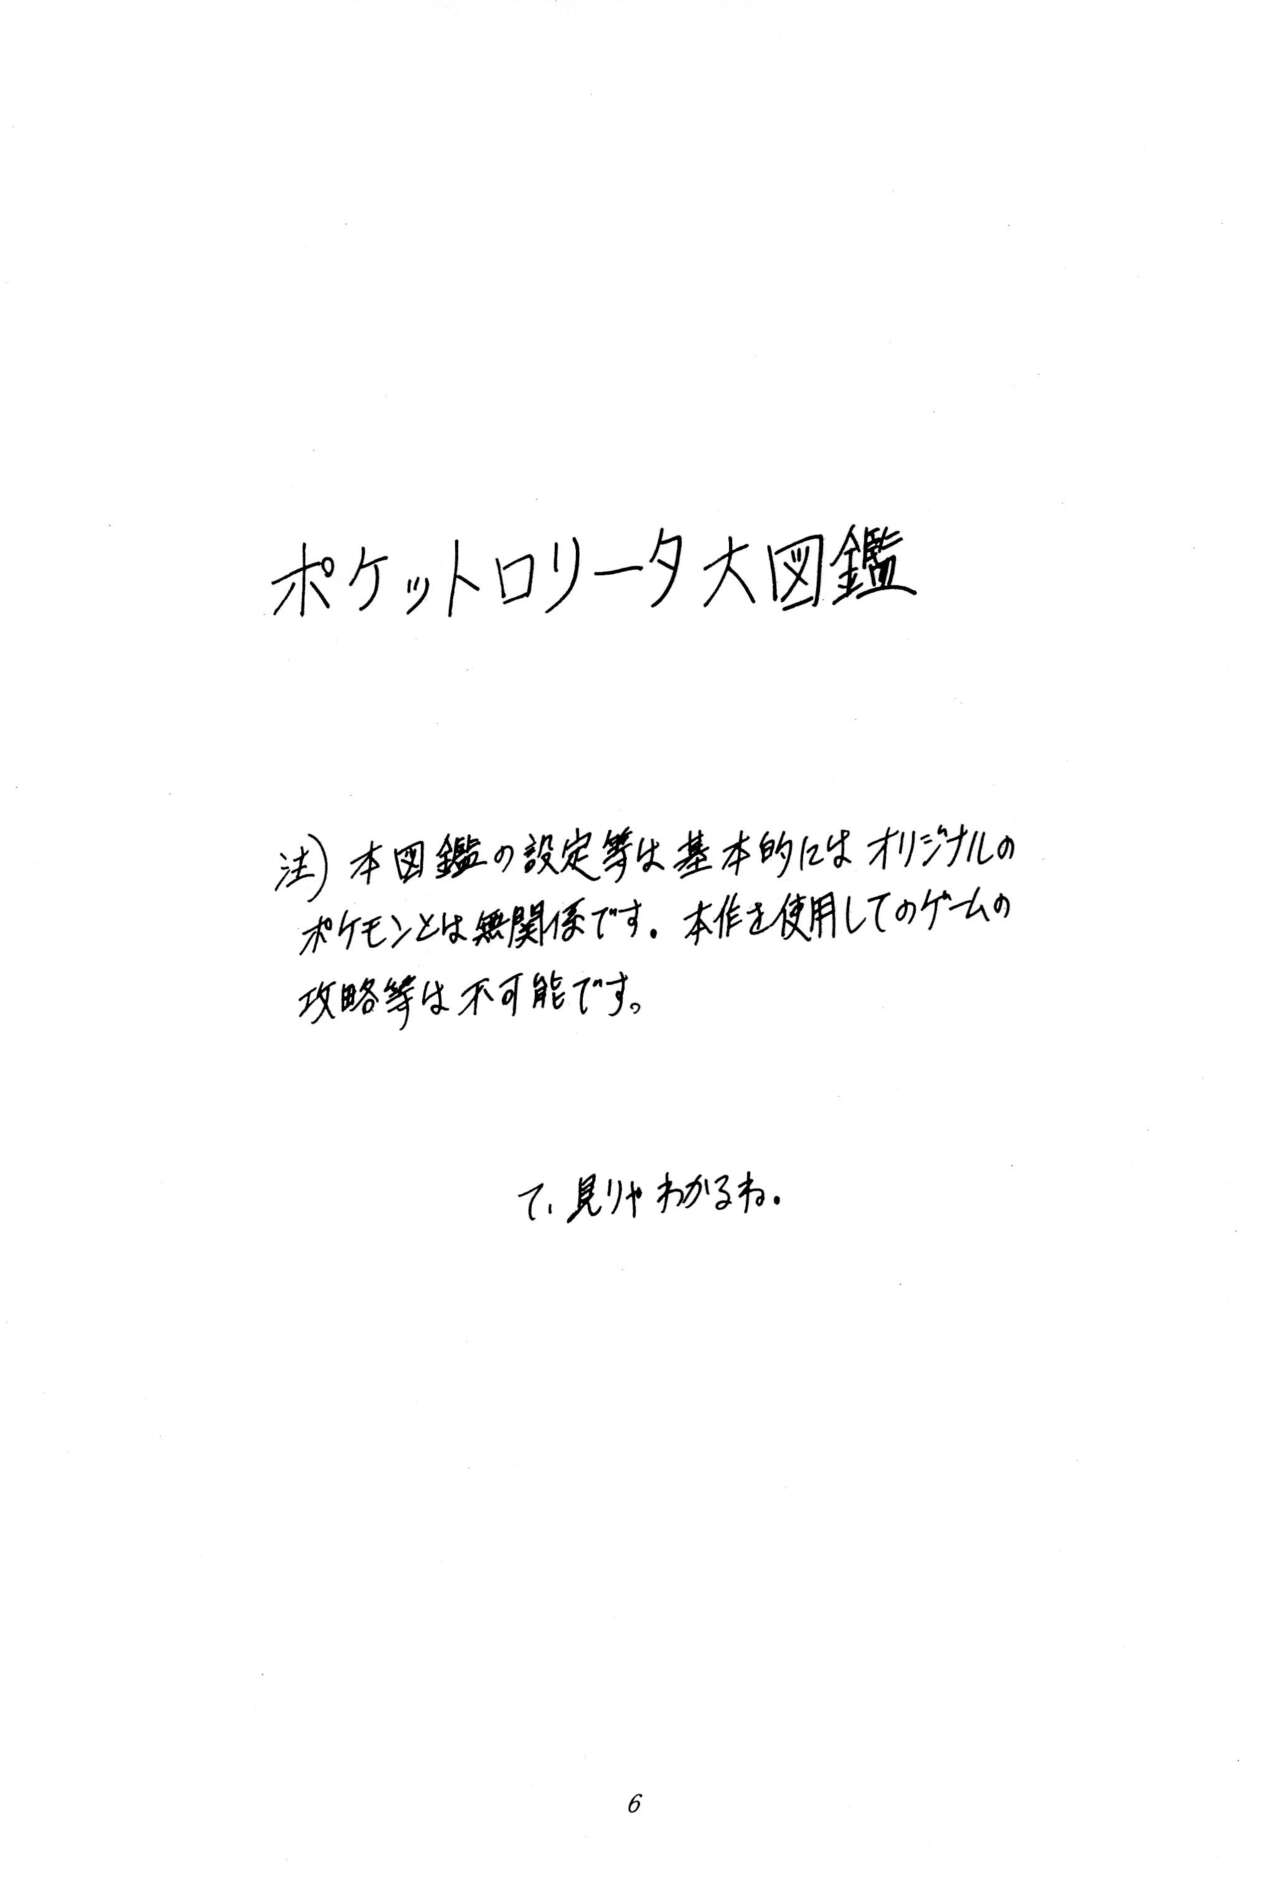 ポケットロリータ大図鑑
注) 本図鑑の設定等は基本的にはオリジナルの
ポケモンとは無関係です。本作を使用してのゲームの
攻略等は不可能です。
て、見りゃわかるね。
6